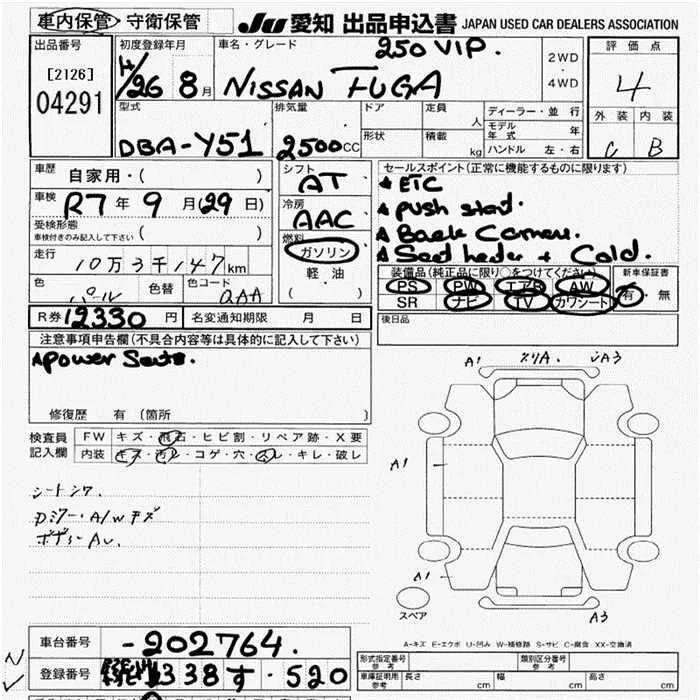 車内保管・守衛保管 JU 愛知 出品申込書 JAPAN USED CAR DEALERS ASSOCIATION
出品番号 初度登録年月 車名・グレード 250 VIP. 2WD ・ 4WD 評価点
[2126] 04291 H/26 8月 NISSAN FUGA 4
型式 排気量 ドア 定員 人 ディーラー・並行 外装 内装
DBA-Y51 2500CC 形状 積載 kg モデル年式 年 C B
ハンドル 左・右
車歴 自家用・( ) シフト AT セールスポイント(正常に機能するものに限ります)
車検 R7年 9月(29日) 冷房 AAC ★ ETC
受検形態 車検付きのみ記入して下さい ( ) 燃料 ガソリン push start.
走行 10万3千147km 軽油 Back Camera.
色 パール 色替 色コード QAA ( ) Seat heater + Cold.
装備品(純正品に限り○をつけてください) 新車保証書
PS PW エアB AW 有・無
SR ナビ TV カワシート
R券 12330円 名変通知期限 月 日 後日品
注意事項申告欄(不具合内容等は具体的に記入して下さい)
Power Seats.
修復歴 有 (箇所 )
検査員記入欄 FW キズ・飛石・ヒビ割・リペア跡・X要
内装 キズ・汚レ・コゲ・穴・スレ・キレ・破レ
シートシワ
A/Wキズ
A1 A3
A1
A1
スペア A3
A-キズ E-エクボ U-凹み W-補修跡 S-サビ C-腐食 XX-交換済
車台番号 -202764.
登録番号 338 す・520
形式指定番号 参考 類別区分番号 参考
車庫証明用 参考 長さ cm 幅 cm 高さ cm